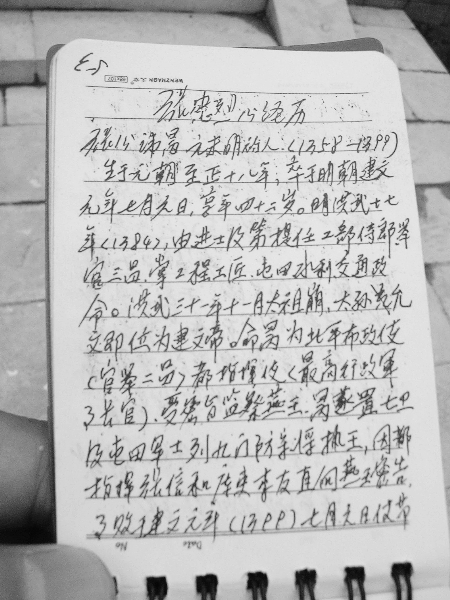 5-3
WENZHAOBN
忠烈公经历
公讳昺 元末明初人(1358-1399)
生于元朝至正十八年,卒于明朝建文
元年七月元日,享年四十二岁。明洪武十七
年(1384),由进士及第提任工部侍郎
官三品,掌工程工匠、屯田水利交通政
令。洪武三十一年十一月太祖崩,太孙允
文即位为建文帝。命昺为北平布政使
(官第二品)都指挥使(最高行政军
事长官),受密旨监察燕王。昺置七卫
及屯田军士列九门防禁俘执王,因都
指挥张信和库吏李友直向燕王密告,
事败,建文元年(1399)七月元日使帝
Date
No